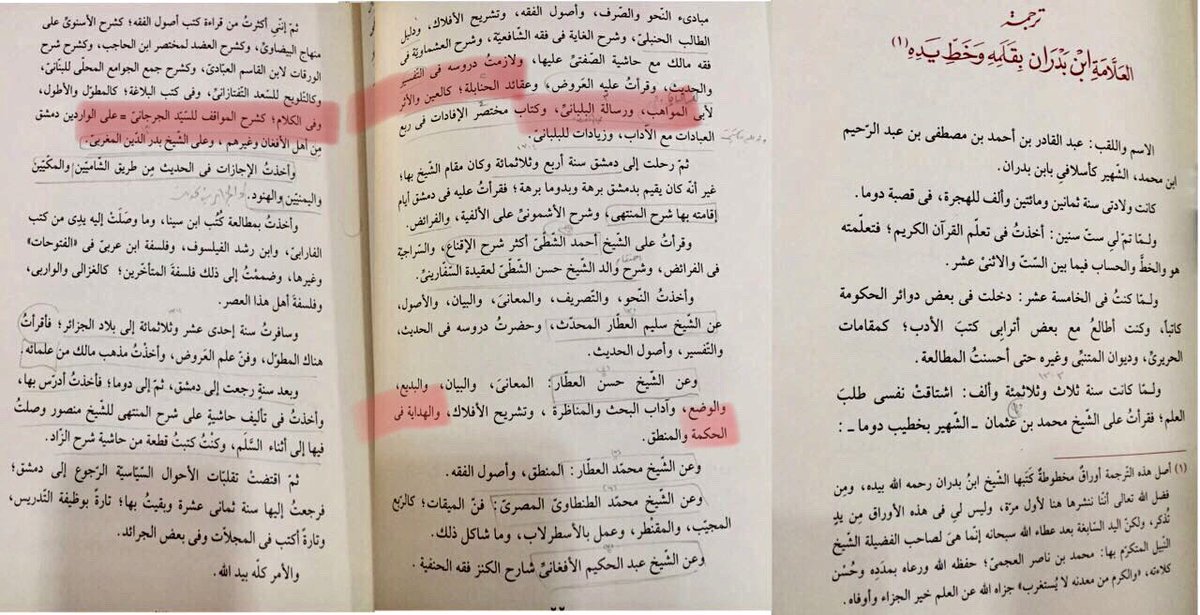 ترجمة
العلامة ابن بدران بقلمه وخط يده (١)
الاسم واللقب: عبد القادر بن أحمد بن مصطفى بن عبد الرّحيم
ابن محمد، الشّهير كأسلافي بابن بدران.
كانت ولادتى سنة ثمانين ومائتين وألف للهجرة، فى قصبة دوما.
ولـمّا تمّ لي ستّ سنين: أخذتُ فى تعلّم القرآن الكريم؛ فتعلّمته
هو والخطَّ والحساب فيما بين السّتّ والاثنى عشر.
ولـمّا كنتُ فى الخامسة عشر: دخلت فى بعض دوائر الحكومة
كاتباً، وكنت أطالعُ مع بعض أترابى كتبَ الأدب؛ كمقامات
الحريرىّ، وديوان المتنبّى وغيره حتى أحسنتُ المطالعة.
ولـمّا كانت سنة ثلاث وثلاثمئة وألف: اشتاقتْ نفسى طلبَ
العلم؛ فقرأتُ على الشّيخ محمد بن عثمان ـ الشّهير بخطيب دوما ـ :
(١) أصل هذه التّرجمة أوراقٌ مخطوطةٌ كتَبها الشّيخ ابنُ بدران رحمه الله بيده، ومِن
فضل الله تعالى أنّنا ننشرها هنا لأول مرّة، وليس لي فى هذه الأوراق مِن يدٍ
تُذكر، ولكنّ اليد السّابغة بعد عطاء الله سبحانه إنّما هىَ لصاحب الفضيلة الشّيخ
النّبيل المتكرّم بها: محمد بن ناصر العجمىّ؛ حفظه الله ورعاه بمدَدِه وحُسْن
كلاءته، «والكرم من معدنه لا يُستغرب» جزاه الله عن العلم خير الجزاء وأوفاه.
مبادىء النّحو والصّرف، وأصول الفقه، وتشريح الأفلاك، ودليل
الطالب الحنبلىّ، وشرح الغاية فى فقه الشّافعيّة، وشرح العشماويّة فى
فقه مالك مع حاشية الصّفتىّ عليها، ولازمتُ دروسه فى التّفسير
والحديث، وقرأتُ عليه العَروض، وعقائد الحنابلة؛ كالعين والأثر
لأبى المواهب، ورسالة البلبانىّ، وكتاب مختصَر الإفادات فى ربع
العبادات مع الآداب، وزيادات للبلبانىّ.
ثمّ رحلت إلى دمشق سنة أربع وثلاثمائة وكان مقام الشّيخ بها؛
غير أنّه كان يقيم بدمشق برهة وبدوما برهة؛ فقرأتُ عليه فى دمشق أيام
إقامته بها شرح المنتهى، وشرح الأشمونىّ على الألفية، والفرائض.
وقرأتُ على الشّيخ أحمد الشّطّىّ أكثر شرح الإقناع، والسّراجية
فى الفرائض، وشرح والد الشّيخ حسن الشّطّىّ لعقيدة السّفارينىّ.
وأخذتُ النّحو، والتّصريف، والمعانى، والبيان، والأصول،
عن الشّيخ سليم العطّار المحدّث، وحضرتُ دروسه فى الحديث،
والتّفسير، وأصول الحديث.
وعن الشّيخ حسن العطّار: المعانى، والبيان، والبديع،
والوضع، وآداب البحث والمناظرة، وتشريح الأفلاك، والهداية فى
الحكمة والمنطق.
وعن الشّيخ محمّد العطّار: المنطق، وأصول الفقه.
وعن الشّيخ محمّد الطنطاوىّ المصرىّ: فنّ الميقات؛ كالرّبع
المجيّب، والمقنْطر، وعمل بالأسطرلاب، وما شاكل ذلك.
وعن الشّيخ عبد الحكيم الأفغانىّ شارح الكنز فقه الحنفية.
٢٢
ثمّ إنّنى أكثرتُ من قراءة كتب أصول الفقه؛ كشرح الأسنوىّ على
منهاج البيضاوىّ، وكشرح العضد لمختصر ابن الحاجب، وكشرح شرح
الورقات لابن القاسم العبّادىّ، وكشرح جمع الجوامع المحلّى للبنّانىّ،
وكالتّلويح للسّعد التّفتازانىّ، وفى كتب البلاغة؛ كالمطوّل والأطول،
وفى الكلام؛ كشرح المواقف للسّيّد الجرجانىّ = على الواردين دمشق
مِن أهل الأفغان وغيرهم، وعلى الشّيخ بدر الدّين المغربىّ.
وأخذتُ الإجازات فى الحديث مِن طريق الشّاميّين والمكيّين
واليمنيّين والهنود.
وأخذتُ بمطالعة كُتُب ابن سينا، وما وصَلَتْ إليه يدِى من كتب
الفارابىّ، وابن رشد الفيلسوف، وفلسفة ابن عربىّ فى «الفتوحات»
وغيرها، وضممتُ إلى ذلك فلسفةَ المتأخّرين؛ كالغزالى والوابى،
وفلاسفة أهل هذا العصر.
وسافرتُ سنة إحدى عشر وثلاثمائة إلى بلاد الجزائر؛ فأقرأتُ
هناك المطوّل، وفنّ علم العَروض، وأخذتُ مذهب مالك من علمائه.
وبعد سنةٍ رجعت إلى دمشق، ثمّ إلى دوما؛ فأخذتُ أدرّس بها،
وأخذتُ فى تأليف حاشيةٍ على شرح المنتهى للشّيخ منصور وصلتُ
فيها إلى أثناء السَّلم، وكنْتُ كتبتُ قطعة من حاشية شرح الزّاد.
ثمّ اقتضتْ تقلبّات الأحوال السّياسّيّة الرّجوع إلى دمشق؛
فرجعتُ إليها سنة ثمانى عشرة وبقيتُ بها؛ تارةً بوظيفة التّدريس،
وتارةً أكتب فى المجلّات وفى بعض الجرائد.
والأمر كلّه بيد الله.